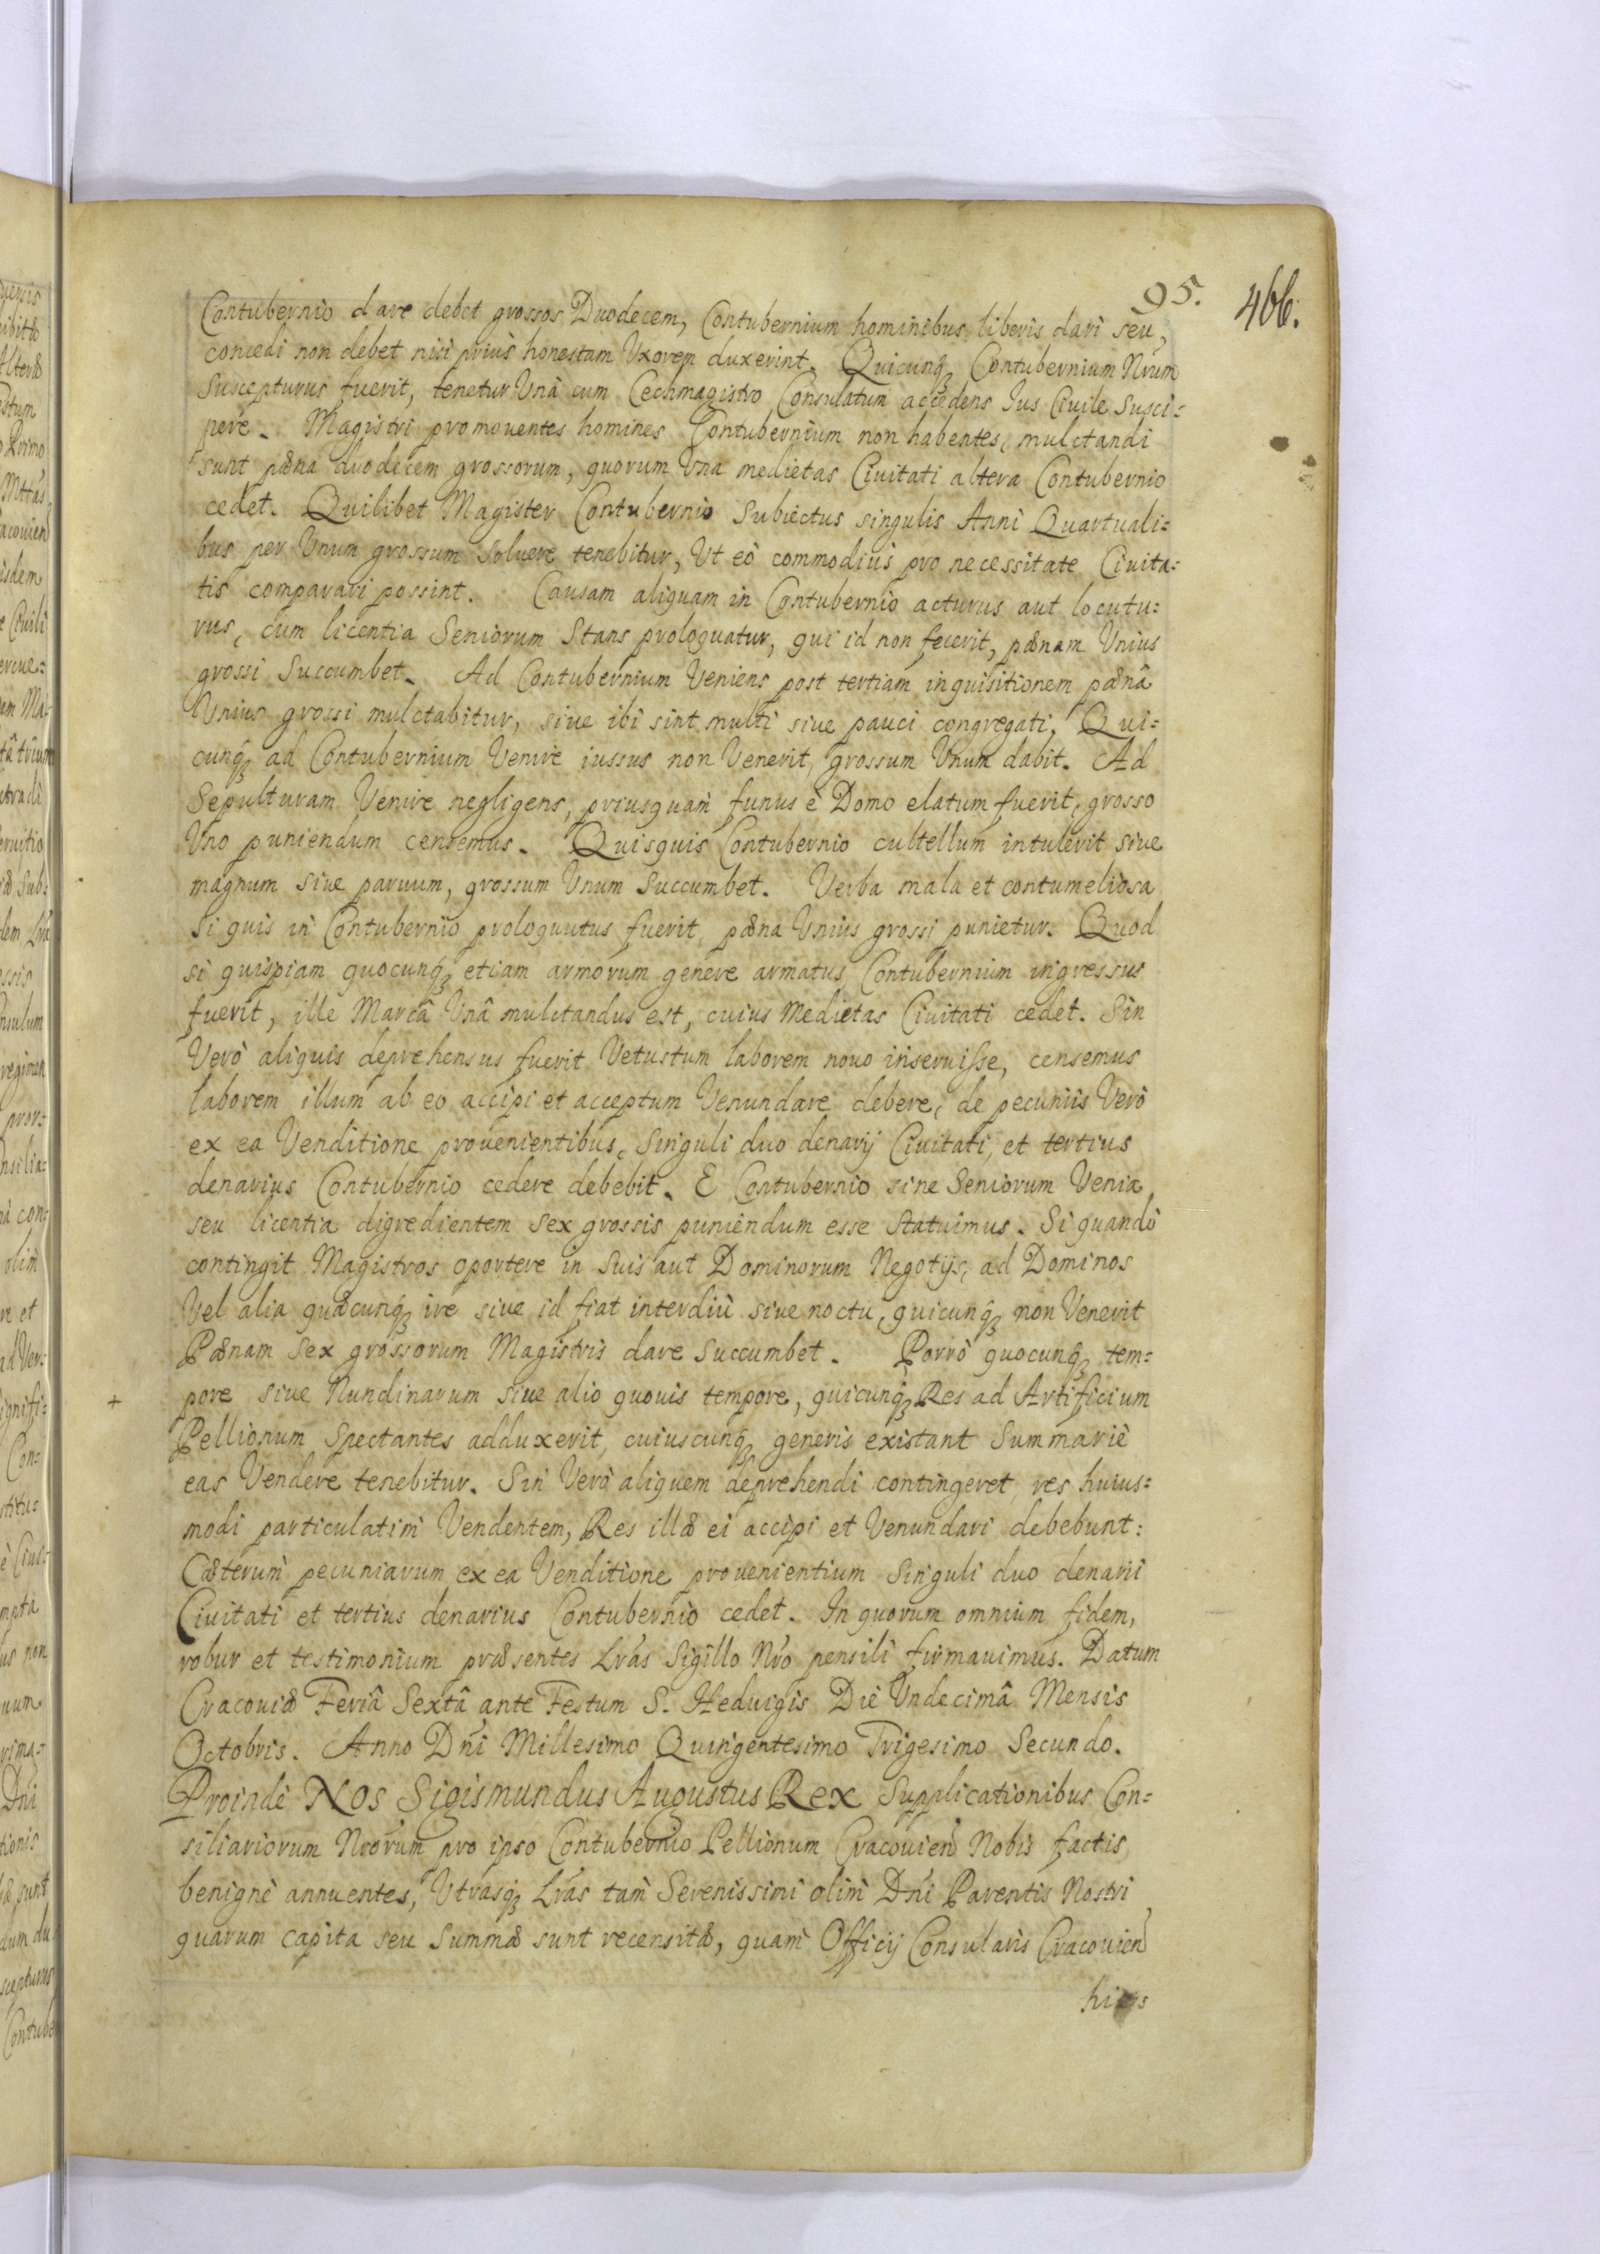 95. 466.
Contubernio dare debet grossos Duodecem, Contubernium hominibus liberis dari seu,
concedi non debet nisi priùs honestam Uxorem duxerint. Quicunq̃ Contubernium Nrum
suscepturus fuerit, tenetur Unà cum Cechmagistro Consulatum accedens Ius Ciuile Susci:
pere. Magistri promouentes homines Contubernium non habentes, mulctandi
sunt pæna duodecem grossorum, quorum Una medietas Ciuitati altera Contubernio
cedet. Quilibet Magister Contubernio Subiectus singulis Anni Quartuali:
bus per Unum grossum Soluere tenebitur, Ut eò commodiùs pro necessitate Ciuita:
tis comparari possint. Causam aliquam in Contubernio acturus aut locutu:
rus, cum licentia Seniorum Stans prologuatur, qui id non fecerit, pænam Unius
grossi Succumbet. Ad Contubernium Veniens post tertiam inquisitionem pænâ
Unius grossi mulctabitur, siue ibi sint multi siue pauci congregati. Qui:
cunq̃ ad Contubernium Venire iussus non Venerit, grossum Unum dabit. Ad
Sepulturam Venire negligens, priusquam funus è Domo elatum fuerit, grosso
Uno puniendum censemus. Quisquis Contubernio cultellum intulerit siue
magnum siue paruum, grossum Unum Succumbet. Verba mala et contumeliosa
si quis in Contubernio prologuutus fuerit, pæna Unius grossi punietur. Quod
si quispiam quocunq̃ etiam armorum genere armatus Contubernium ingressus
fuerit, ille Marcâ Unâ mulctandus est, cuius Medietas Ciuitati cedet. Sin
Verò aliquis deprehensus fuerit Vetustum laborem nouo inseruisse, censemus
laborem illum ab eo accipi et acceptum Venundare debere, de pecuniis Verò
ex ea Venditione prouenientibus, Singuli duo denarij Ciuitati, et tertius
denarius Contubernio cedere debebit. E Contubernio sine Seniorum Venia
seu licentia digredientem sex grossis puniendum esse statuimus. Si quando
contingit Magistros oportere in Suis aut Dominorum Negotijs, ad Dominos
Vel alia quæcunq̃ ire siue id fiat interdiù siue noctu, quicunq̃ non Venerit
Pænam Sex grossorum Magistris dare Succumbet. Porrò quocunq̃ tem:
+ pore siue Nundinarum siue alio quouis tempore, quicunq̃ Res ad Artificium
Pellionum Spectantes adduxerit, cuiuscunq̃ generis existant Summariè
eas Vendere tenebitur. Sin Verò aliquem deprehendi contingeret, res huius:
modi particulatim Vendentem, Res illæ ei accipi et Venundari debebunt:
Cæterum pecuniarum ex ea Venditione prouenientium Singuli duo denarii
Ciuitati et tertius denarius Contubernio cedet. In quorum omnium fidem,
robur et testimonium præsentes Lrãs Sigillo Nrõ pensili firmauimus. Datum
Cracouiæ Feriâ Sextâ ante Festum S. Heduigis Die Undecimâ Mensis
Octobris. Anno Dni Millesimo Quingentesimo Trigesimo Secundo.
Proinde Nos Sigismundus Augustus Rex Supplicationibus Con:
siliariorum Nrorum pro ipso Contubernio Pellionum Cracouien Nobis factis
benignè annuentes, Utrasq̃ Lrãs tam Serenissimi olim Dni Parentis Nostri
quarum capita seu Summæ sunt recensitæ, quam Officij Consularis Cracouien